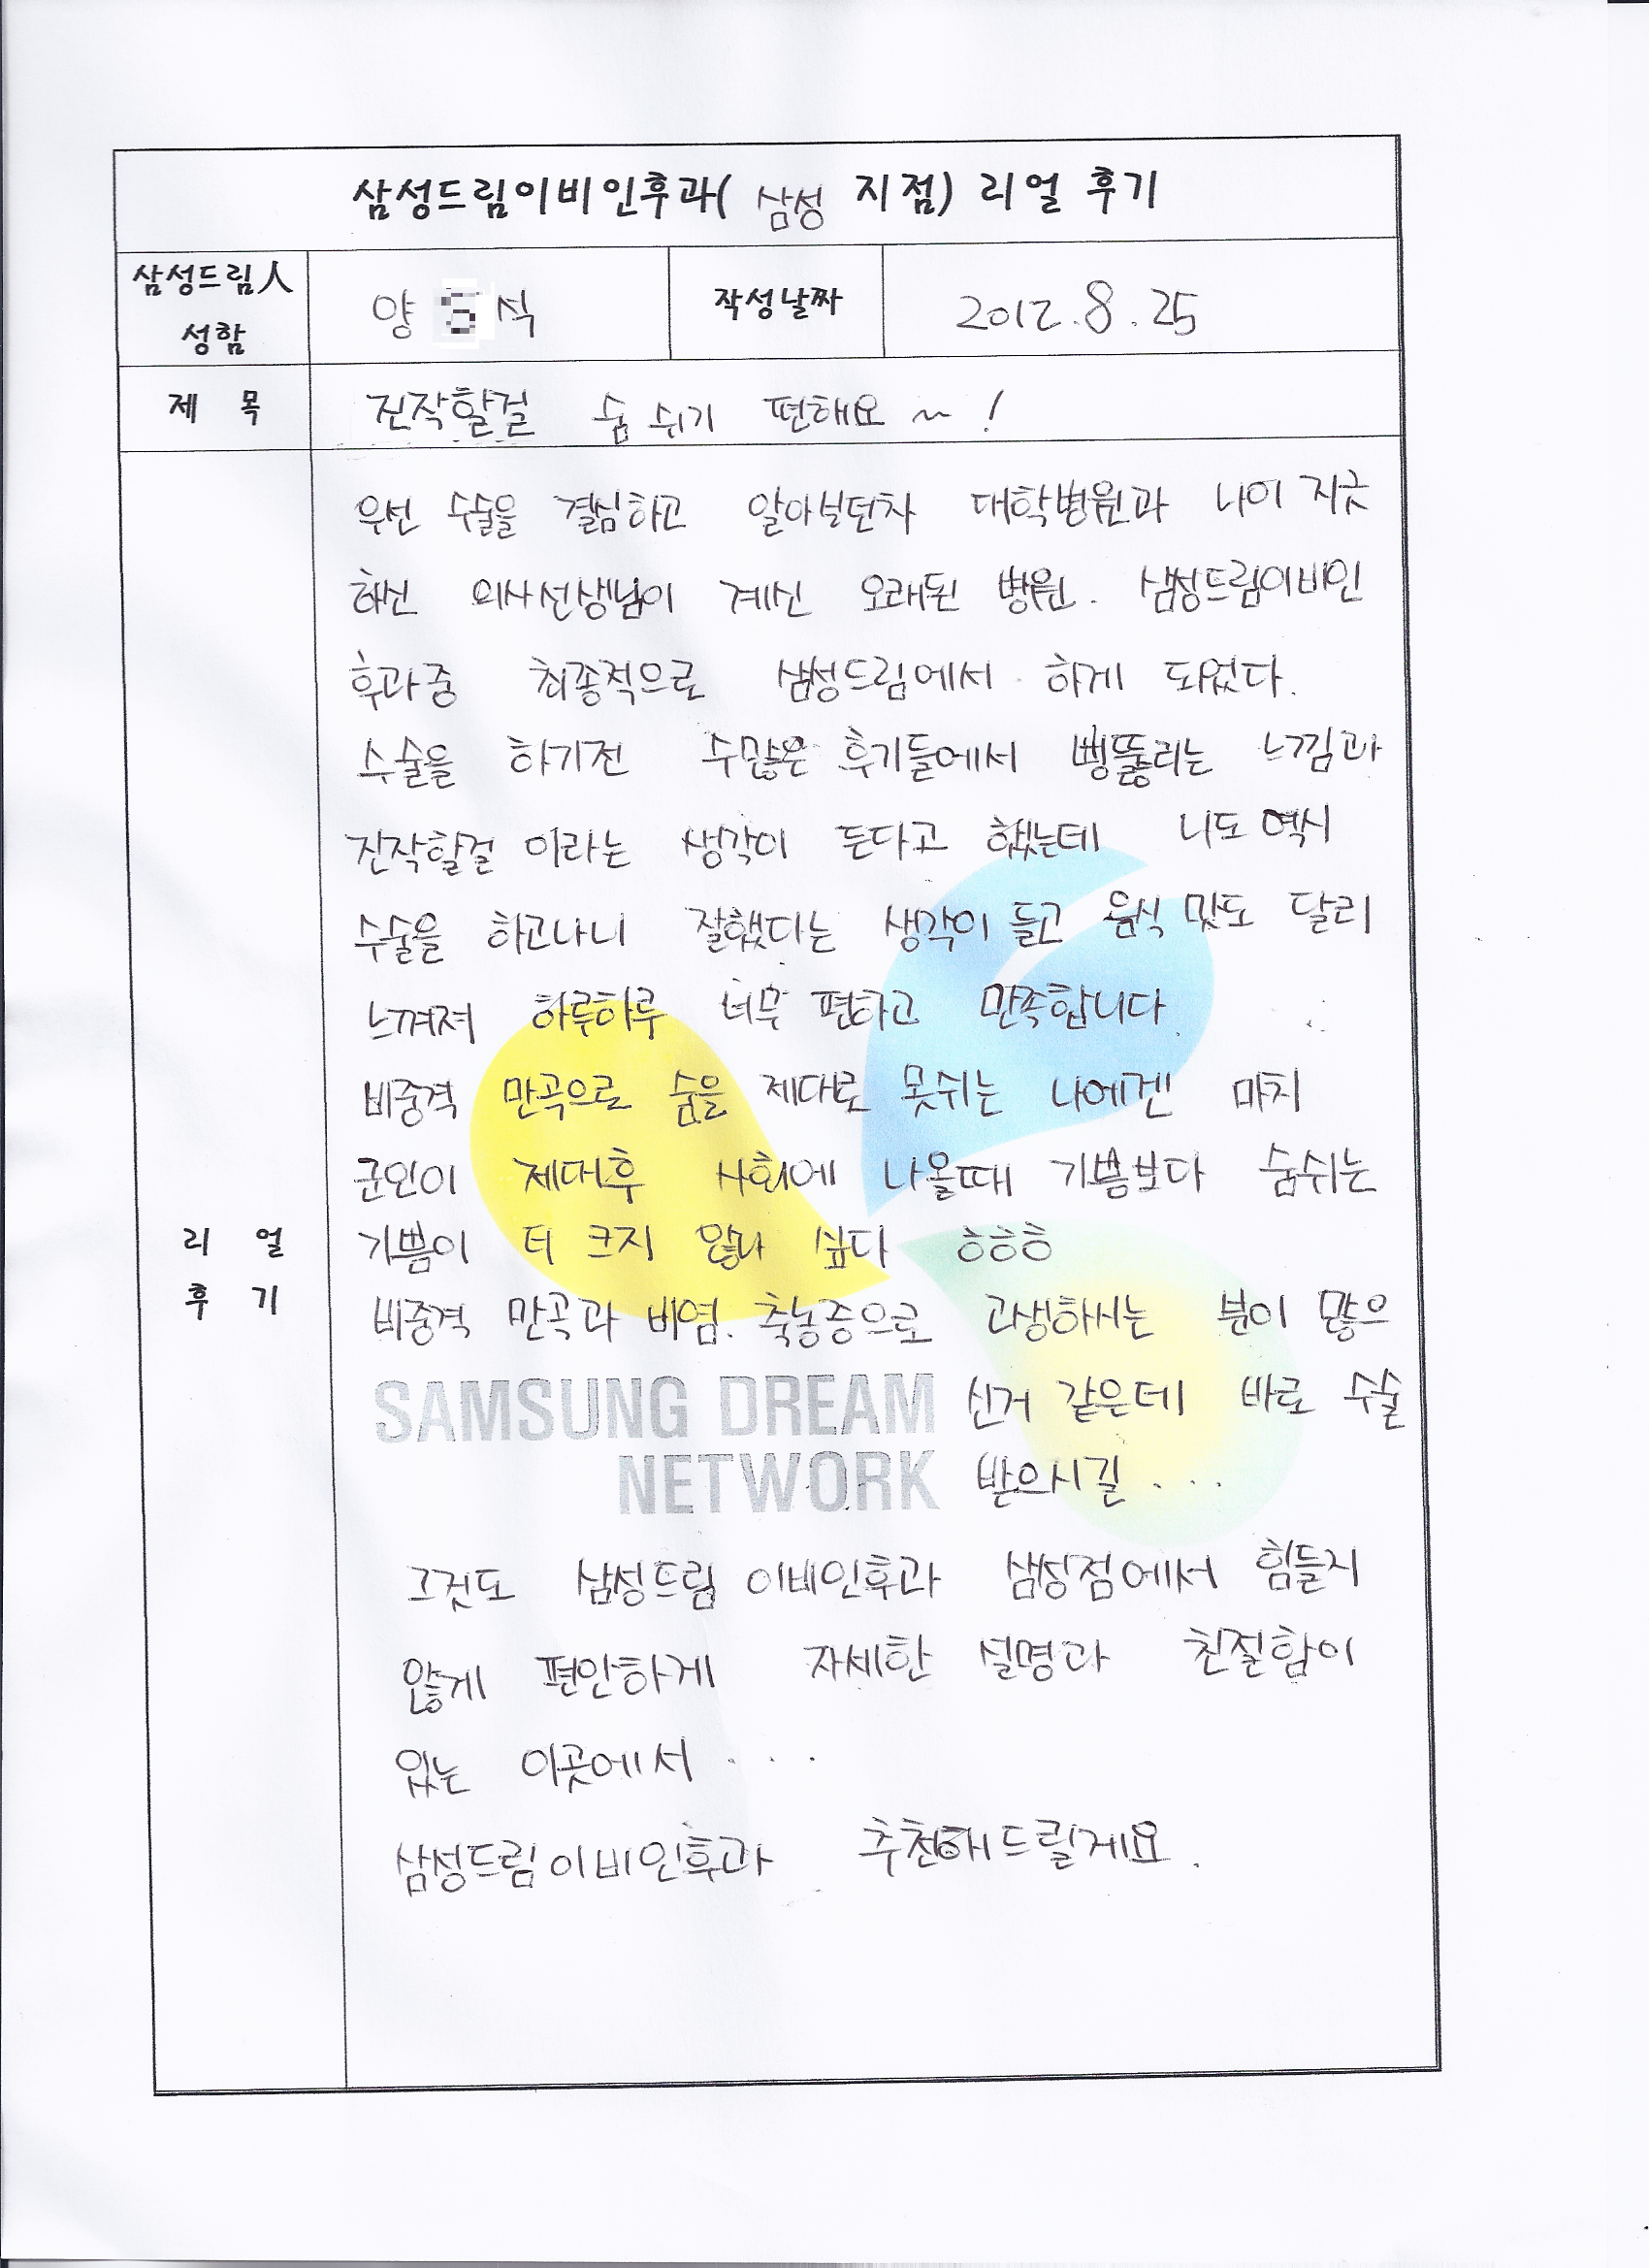 삼성드림이비인후과( 삼성 지점) 리얼 후기
삼성드림人 성함
양 식
작성날짜
2012.8.25
제 목
진작할걸 숨 쉬기 편해요~!
리 얼 후 기
우선 수술을 결심하고 알아보던차 대학병원과 나이 지긋
하신 의사선생님이 계신 오래된 병원. 삼성드림이비인
후과중 최종적으로 삼성드림에서 하게 되었다.
수술을 하기전 수많은 후기들에서 뻥뚫리는 느낌과
진작할걸 이라는 생각이 든다고 했는데 나도 역시
수술을 하고나니 잘했다는 생각이 들고 음식 맛도 달리
느껴져 하루하루 너무 편하고 만족합니다.
비중격 만곡으로 숨을 제대로 못쉬는 나에겐 마치
군인이 제대후 사회에 나올때 기쁨보다 숨쉬는
기쁨이 더 크지 않나 싶다 ㅎㅎㅎ
비중격 만곡과 비염. 축농증으로 고생하시는 분이 많으
신거 같은데 바로 수술
받으시길 ....
SAMSUNG DREAM
NETWORK
그것도 삼성드림 이비인후과 삼성점에서 힘들지
않게 편안하게 자세한 설명과 친절함이
있는 이곳에서 ....
삼성드림이비인후과 추천해드릴게요.